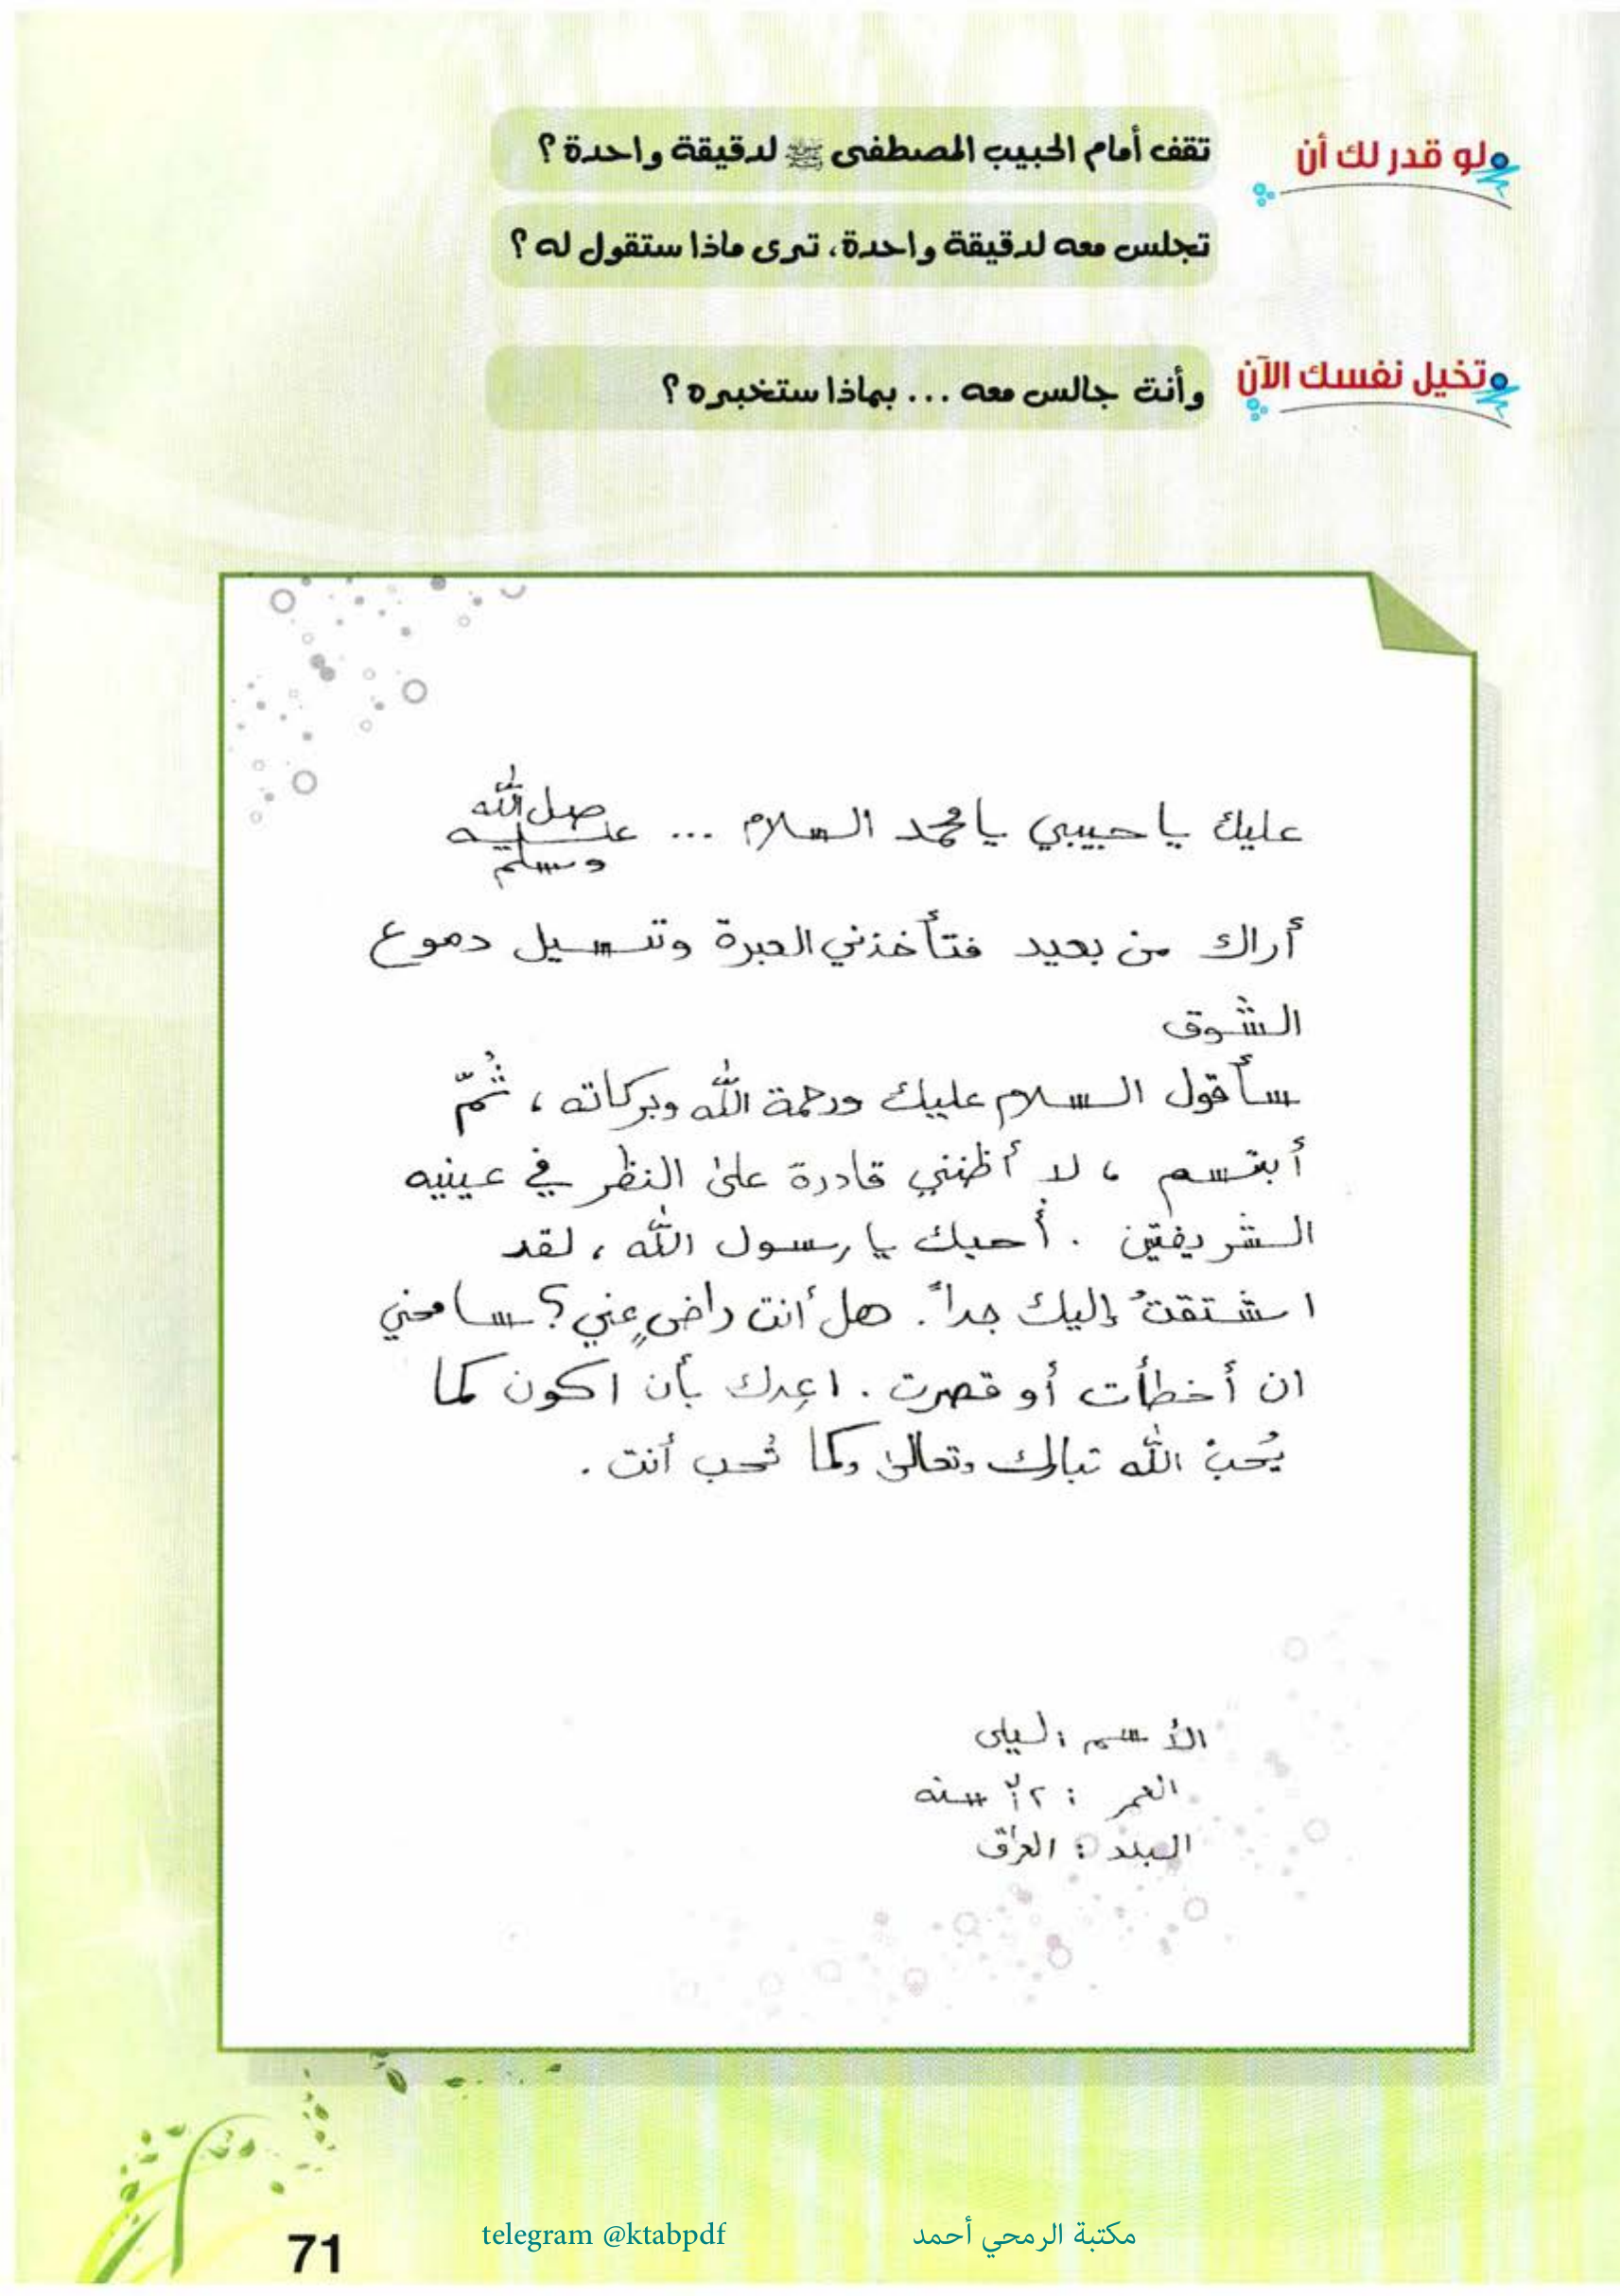 ولو قدر لك أن تقف أمام الحبيب المصطفى ﷺ لدقيقة واحدة ؟
تجلس معه لدقيقة واحدة، ترى ماذا ستقول له ؟
وتخيل نفسك الآن وأنت جالس معه ... بماذا ستخبره ؟
عليك يا حبيبي يا محمد السلام ... صلى الله عليه وسلم
أراك من بعيد فتأخذني العبرة وتسيل دموع
الشوق
سأقول السلام عليك ورحمة الله وبركاته ، ثُمّ
أبتسم ، لا أظنني قادرة على النظر في عينيه
الشريفتين . أُحبك يا رسول الله ، لقد
اشتقتُ إليك جداً . هل أنت راضٍ عني ؟ سامحني
ان أخطأت أو قصرت . اعِدك بأن اكون كما
يُحبُ الله تبارك وتعالى وكما تُحب أنت .
الأسم : ليلى
العمر : سنه
البلد : العراق
71
telegram @ktabpdf
مكتبة الرمحي أحمد